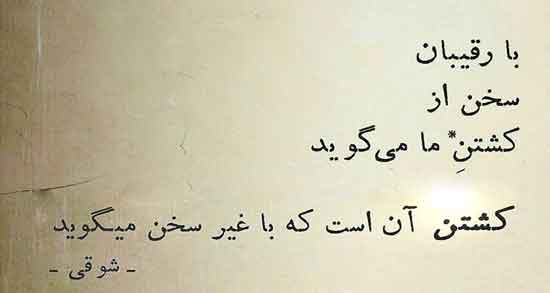 با رقیبان
سخن از
کشتنِ* ما می‌گوید
کشتن آن است که با غیر سخن میگوید
- شوقی -